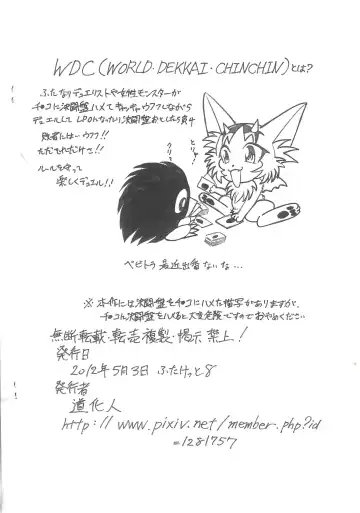 WDC(WORLD・DEKKAI・CHINCHIN)とは?
ふたなりデュエリストや女性モンスターが
チ○コに決闘盤ハメてキャッキャウフフしながら
デュエルして LP0になったり決闘盤おとしたら負け
敗者には…ウフフ!!
ただそれだけさ!!
ルールを守って
楽しくデュエル!!
クリ
とり
ベビトラ 最近出番ないな…
※ 本作には決闘盤をチ○コにハメた描写がありますが、
チ○コに決闘盤をハメると大変危険ですのでおやめください
無断転載・転売・複製・掲示 禁止!
発行日
2012年5月3日 ふたけっと8
発行者
道化人
http://www.pixiv.net/member.php?id
=1281757